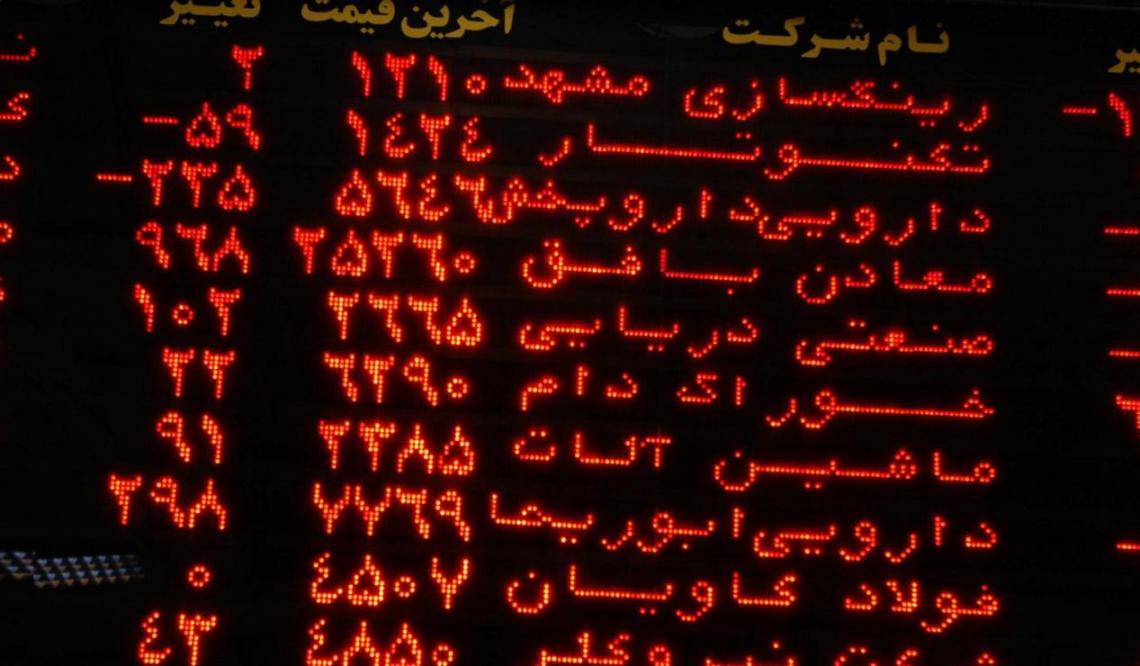 نام شرکت آخرین قیمت تغییر
رینگسازی مشهد ۱۲۱۰ ۲
تکنوتار ۱۴۲۴ ۵۹-
دارویی‌داروپخش ۵۶۴۶ ۲۳۵-
معادن بافق ۲۵۲۶۰ ۹۶۸
صنعتی دریایی ۲۶۶۵ ۱۰۲
خوراک دام ۶۲۹۰ ۲۲
ماشین آلات ۲۳۸۵ ۹۱
دارویی‌ابوریحا ۷۷۶۹ ۲۹۸
فولاد کاویان ۴۵۰۷ ۰
۴۸۵۰ ۴۳